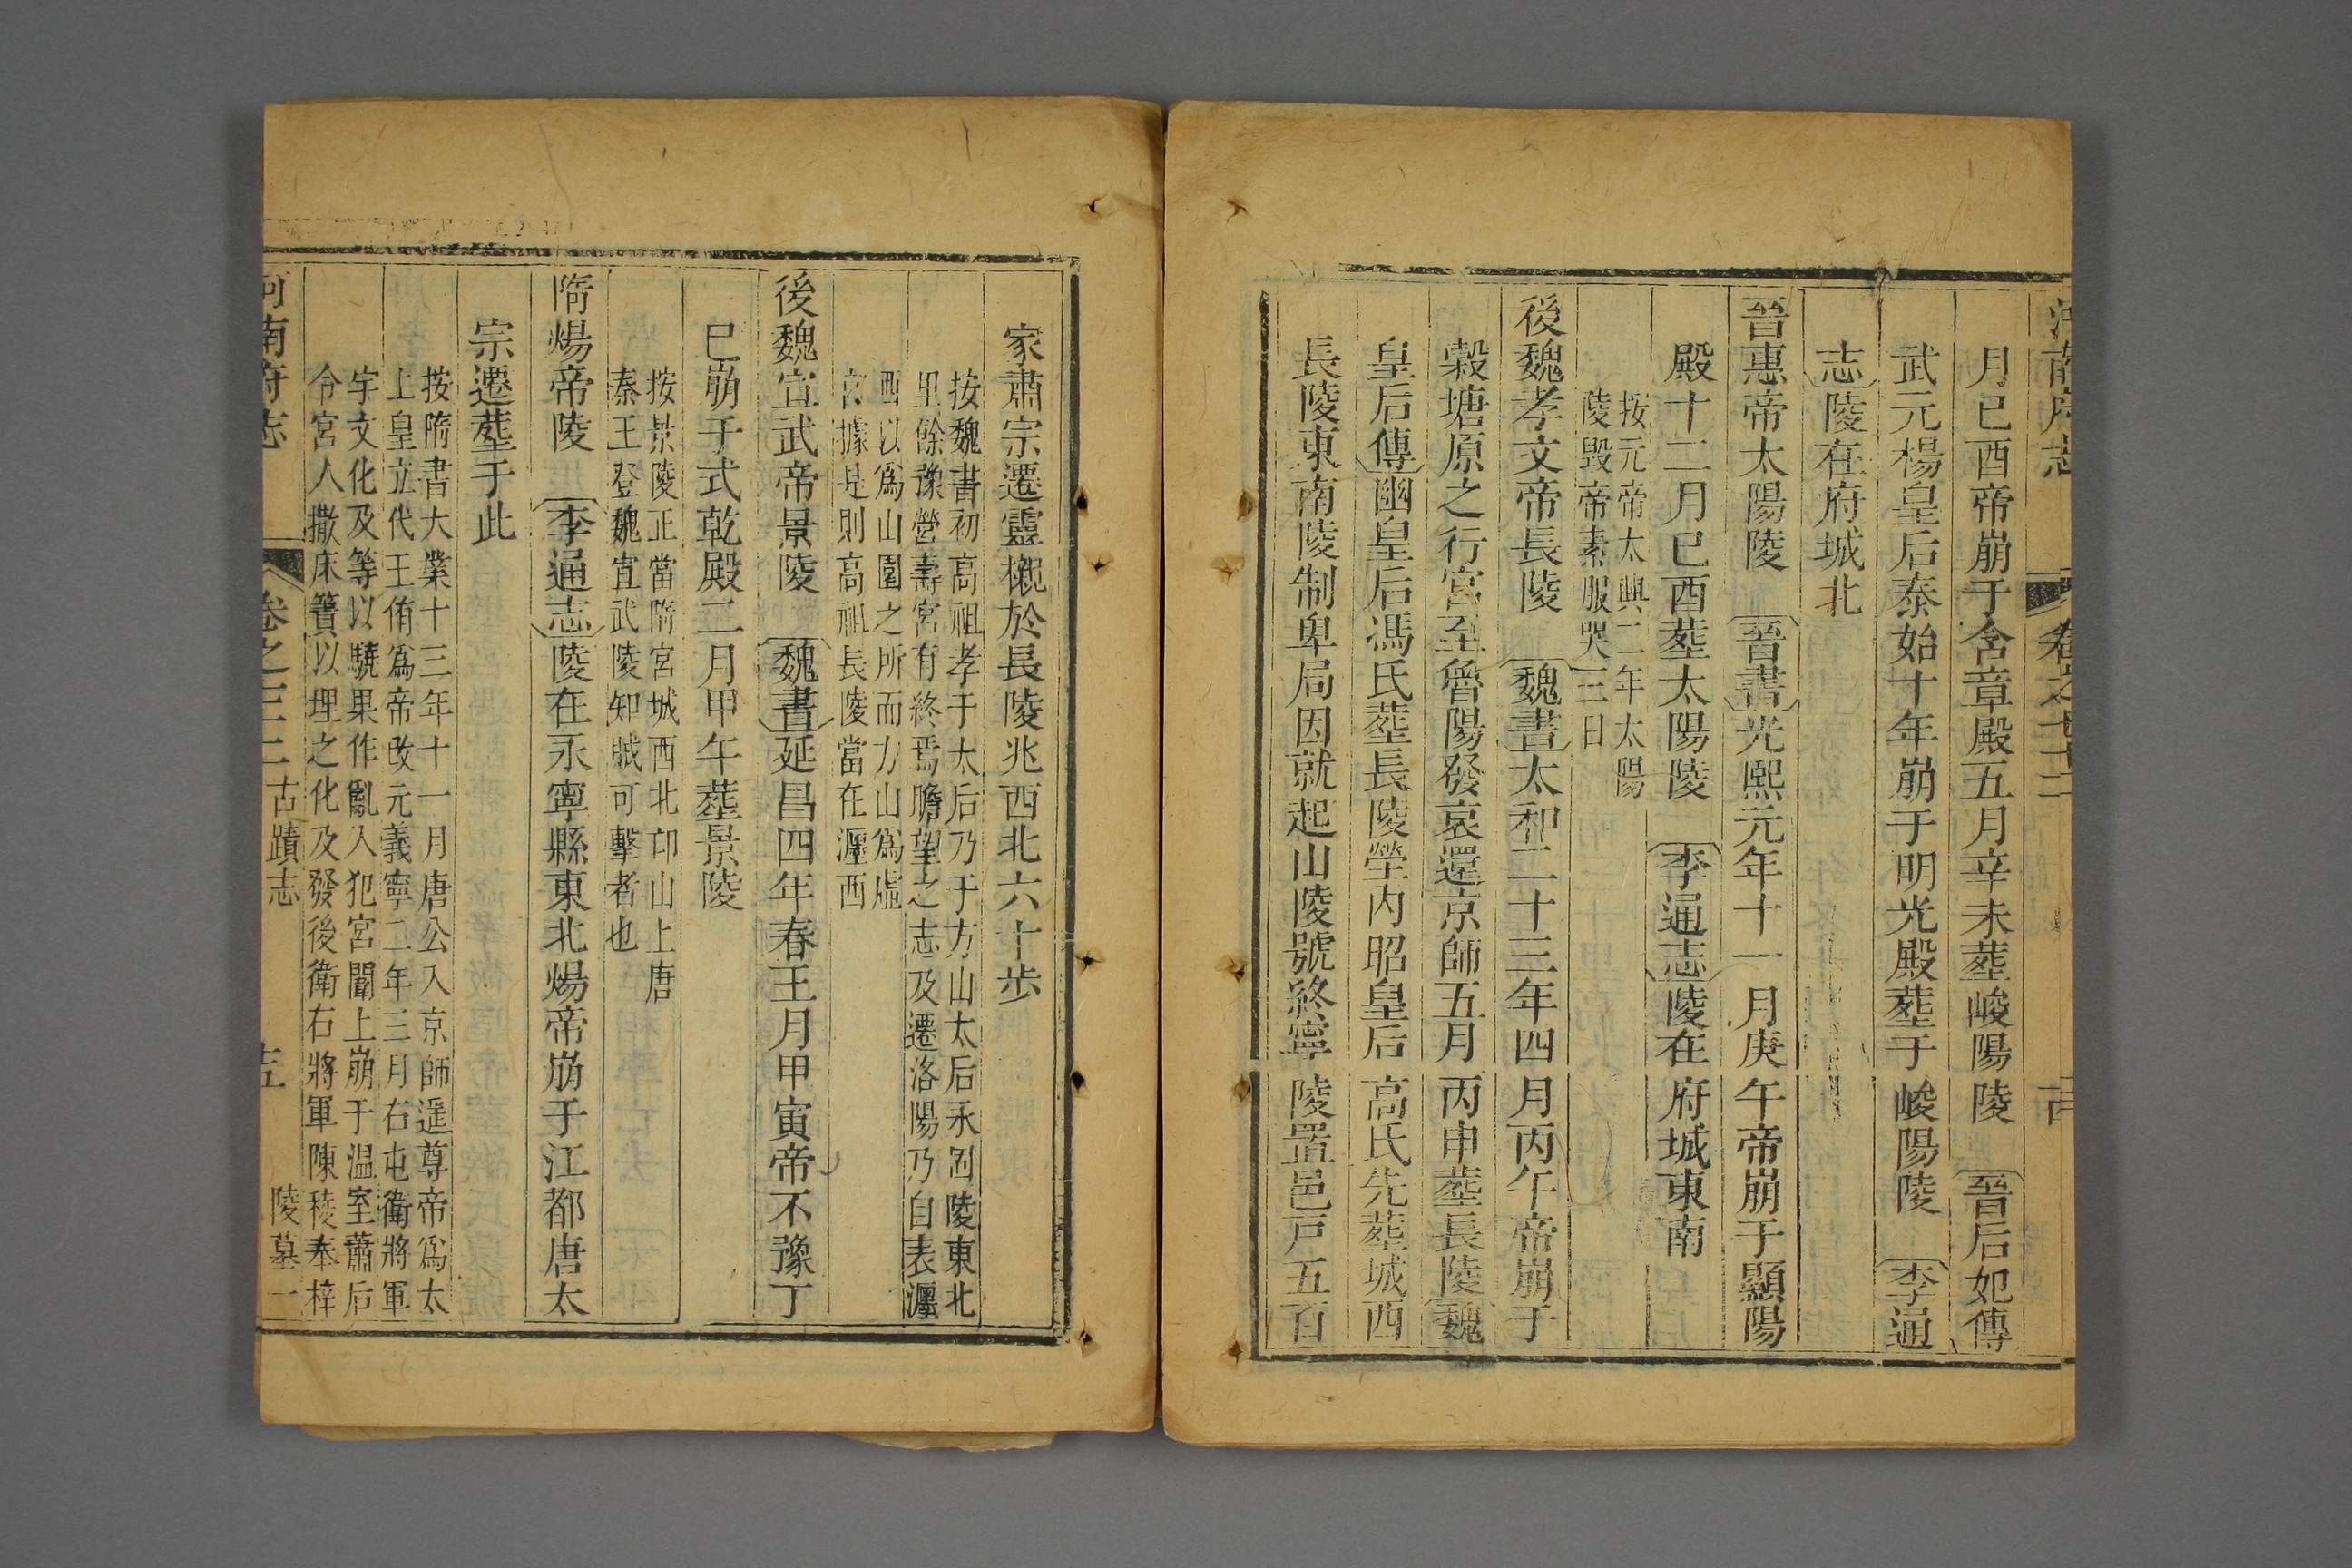 月已酉帝崩于含章殿五月辛未塟峻陽陵 晉后妃傳
武元楊皇后泰始十年崩于明光殿塟于峻陽陵 李通
志陵在府城北
晉惠帝太陽陵 晉書光熙元年十一月庚午帝崩于顯陽
殿十二月已酉塟太陽陵 李通志陵在府城東南
按元帝太興二年太陽
陵毁帝素服哭三日
後魏孝文帝長陵 魏書太和二十三年四月丙午帝崩于
穀塘原之行宮至魯陽發哀還京師五月丙申塟長陵魏
皇后傳幽皇后馮氏塟長陵塋内昭皇后高氏先塟城西
長陵東南陵制卑局因就起山陵號終寧陵置邑戸五百
家肅宗遷靈櫬於長陵兆西北六十步
按魏書初高祖孝于太后乃于方山太后永固陵東北
里餘豫營壽宮有終焉瞻望之志及遷洛陽乃自表瀍
西以爲山園之所而方山爲虛
宮據是則高祖長陵當在瀍西
後魏宣武帝景陵 魏書延昌四年春王月甲寅帝不豫丁
巳崩于式乾殿二月甲午塟景陵
按景陵正當隋宮城西北邙山上唐
秦王登魏宣武陵知賊可擊者也
隋煬帝陵 李通志陵在永寧縣東北煬帝崩于江都唐太
宗遷塟于此
按隋書大業十三年十一月唐公入京師遥尊帝爲太
上皇立代王侑爲帝改元義寧二年三月右屯衛將軍
宇文化及等以驍果作亂入犯宮闈上崩于温室蕭后
令宮人撤床簀以埋之化及發後衛右將軍陳稜奉梓
河南府志 卷之 古蹟志 陵墓一